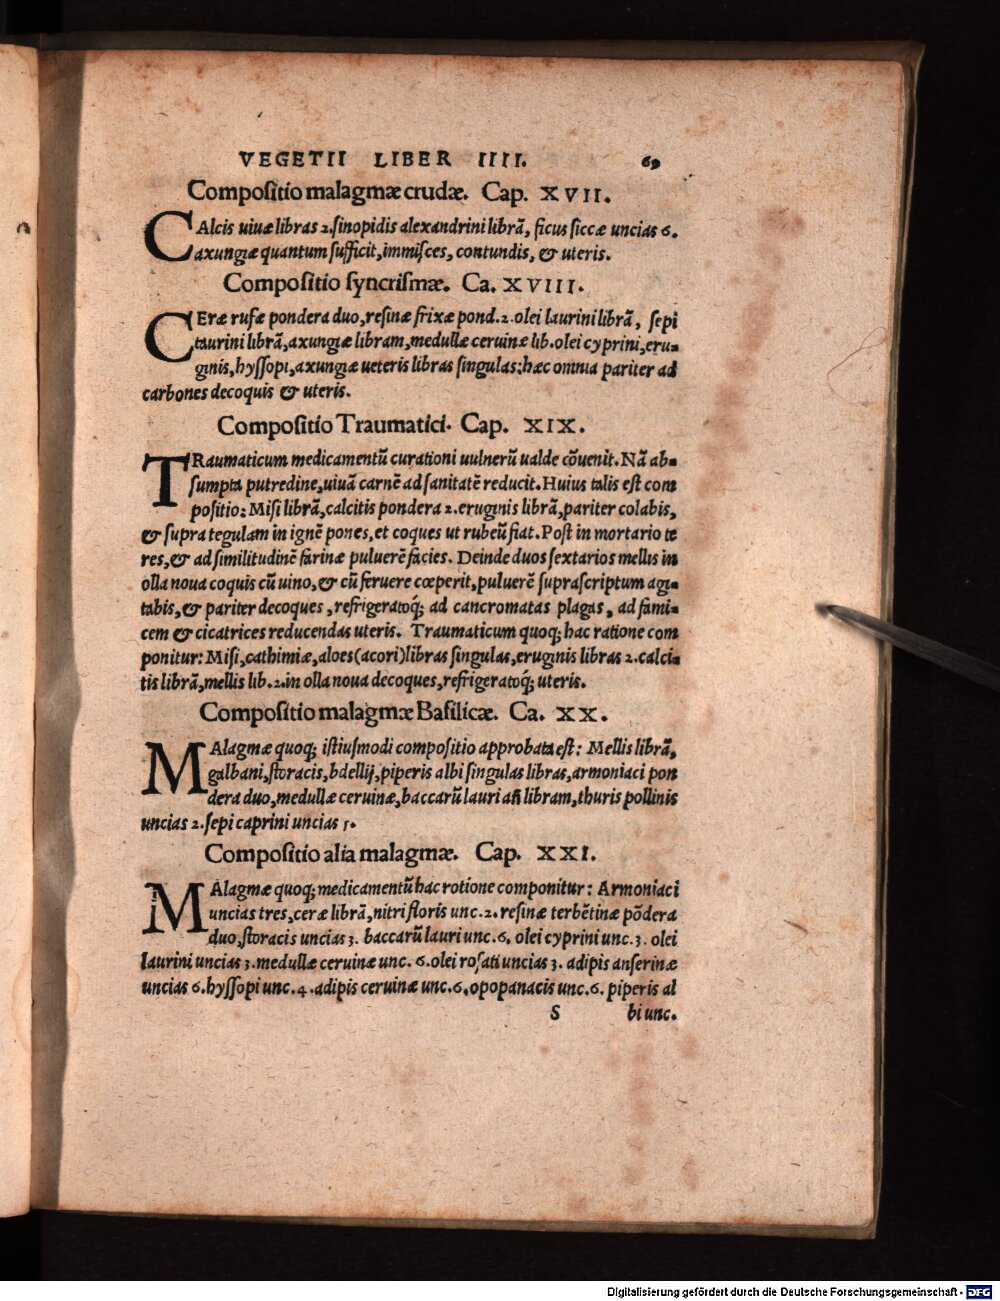 VEGETII LIBER IIII. 69
Compositio malagmæ crudæ. Cap. XVII.
CAlcis uiuæ libras 2. sinopidis alexandrini librã, ficus siccæ uncias 6.
axungiæ quantum sufficit, immisces, contundis, & uteris.
Compositio syncrismæ. Ca. XVIII.
CEræ rufæ pondera duo, resinæ frixæ pond. 2. olei laurini librã, sepi
taurini librã, axungiæ libram, medullæ ceruinæ lib. olei cyprini, eru-
ginis, hyssopi, axungiæ ueteris libras singulas: hæc omnia pariter ad
carbones decoquis & uteris.
Compositio Traumatici. Cap. XIX.
TRaumaticum medicamentũ curationi uulnerũ ualde cõuenit. Nã ab-
sumpta putredine, uiuã carnẽ ad sanitatẽ reducit. Huius talis est com
positio: Misi librã, calcitis pondera 2. eruginis librã, pariter colabis,
& supra tegulam in ignẽ pones, et coques ut rubeũ fiat. Post in mortario te
res, & ad similitudinẽ farinæ puluerẽ facies. Deinde duos sextarios mellis in
olla noua coquis cũ uino, & cũ feruere cœperit, puluerẽ suprascriptum agi-
tabis, & pariter decoques, refrigeratoq; ad cancromatas plagas, ad fami-
cem & cicatrices reducendas uteris. Traumaticum quoq; hac ratione com
ponitur: Misi, cathimiæ, aloes (acori) libras singulas, eruginis libras 2. calci-
tis librã, mellis lib. 2. in olla noua decoques, refrigeratoq; uteris.
Compositio malagmæ Basilicæ. Ca. XX.
MAlagmæ quoq; istiusmodi compositio approbata est: Mellis librã,
galbani, storacis, bdellij, piperis albi singulas libras, armoniaci pon
dera duo, medullæ ceruinæ, baccarũ lauri añ libram, thuris pollinis
uncias 2. sepi caprini uncias 1.
Compositio alia malagmæ. Cap. XXI.
MAlagmæ quoq; medicamentũ hac rotione componitur: Armoniaci
uncias tres, ceræ librã, nitri floris unc. 2. resinæ terbẽtinæ põdera
duo, storacis uncias 3. baccarũ lauri unc. 6. olei cyprini unc. 3. olei
laurini uncias 3. medullæ ceruinæ unc. 6. olei rosati uncias 3. adipis anserinæ
uncias 6. hyssopi unc. 4. adipis ceruinæ unc. 6. opopanacis unc. 6. piperis al
S bi unc.
Digitalisierung gefördert durch die Deutsche Forschungsgemeinschaft - DFG